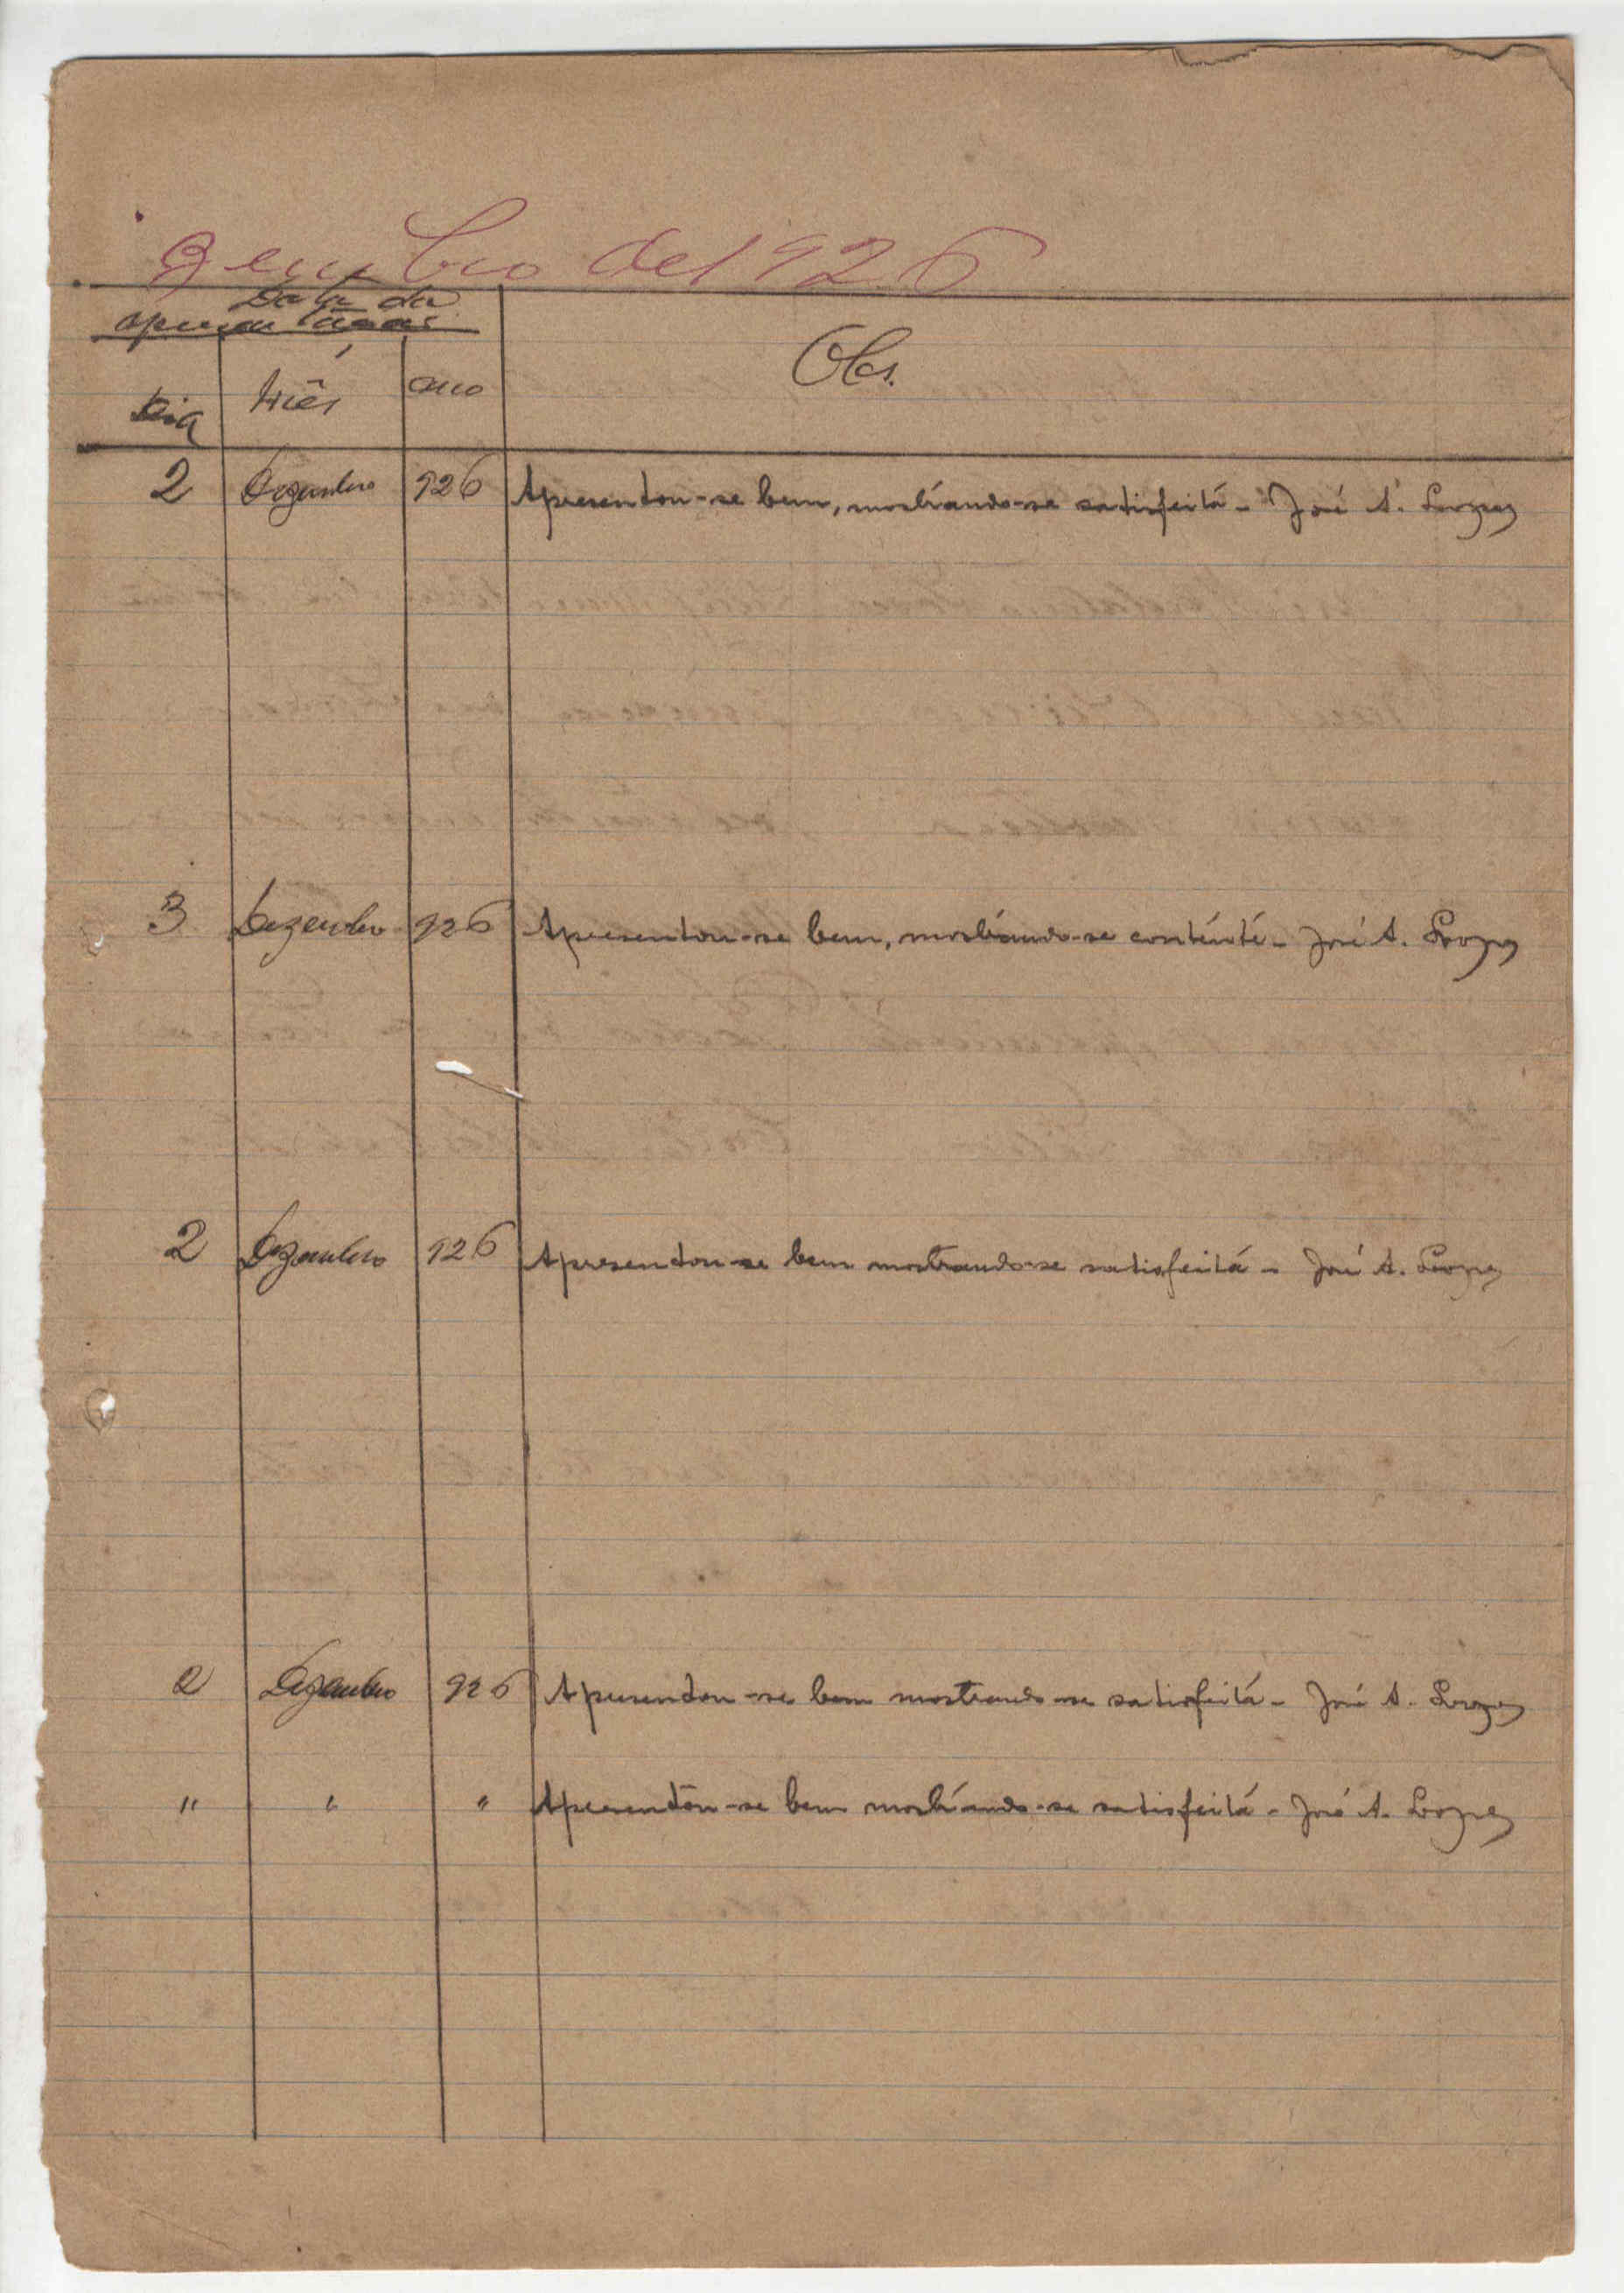 zembro de 1926
Data da
apresentação
dia mês ano Obs.
2 Dezembro 926 Apresentou-se bem, mostrando-se satisfeitá - José A. Lopes
3 Dezembro 926 Apresentou-se bem, mostrando-se conténté - José A. Lopes
2 Dezembro 926 Apresentou-se bem mostrando-se satisfeitá - José A. Lopes
2 Dezembro 926 Apresentou-se bem mostrando-se satisfeitá - José A. Lopes
" " " Apresentou-se bem mostrando-se satisfeitá - José A. Lopes